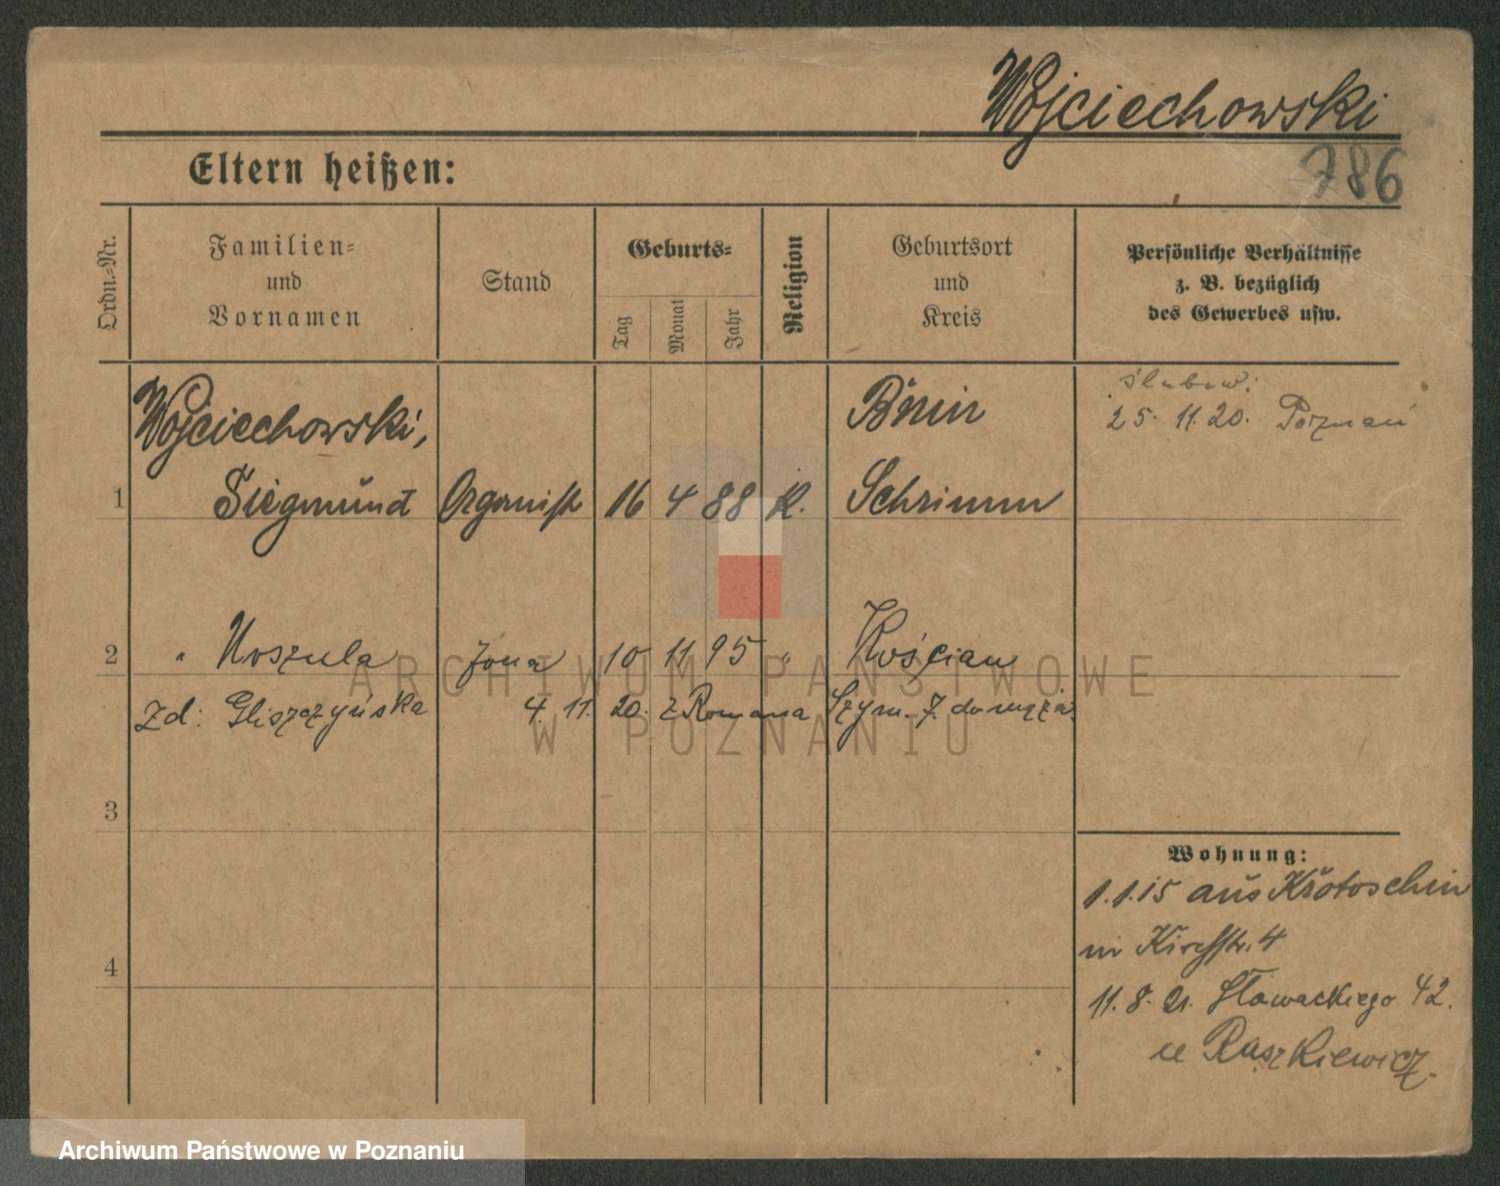 Wojciechowski
786
Eltern heißen:
Ordn.-Nr.
Familien-
und
Vornamen
Stand
Geburts-
Tag
Monat
Jahr
Religion
Geburtsort
und
Kreis
Persönliche Verhältnisse
z. B. bezüglich
des Gewerbes usw.
Wojciechowski,
Bnin
ślubow:
25. 11. 20. Poznań
1 Siegmund Organist 16 4 88 K. Schrimm
2 " Urszula żona 10 11 95 " Kościan
zd: Gliszczyńska 4. 11. 20. z Romana Szym. 7. do męża
3
4
Wohnung:
1.1.15 aus Krotoschin
Kirchstr. 4
11. 8. 21. Słowackiego 42.
u Raszkiewicz.
ARCHIWUM PAŃSTWOWE
W POZNANIU
Archiwum Państwowe w Poznaniu